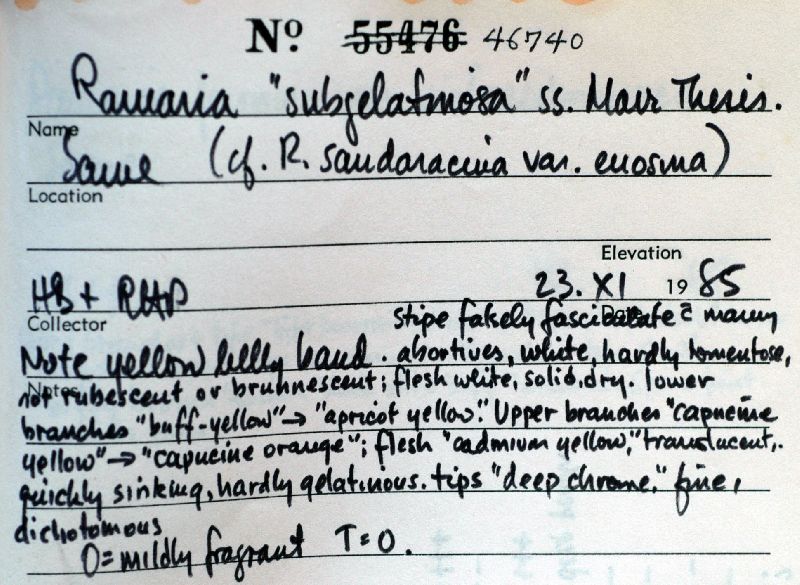 Nº 55476 46740
Ramaria "subgelatinosa" ss. Marr Thesis.
Name
Same (cf. R. sandaracina var. euosma)
Location
Elevation
HB + RHP 23. XI 1985
Collector Date stipe falsely fasciculate c̄ many
Note yellow belly band. abortives, white, hardly tomentose,
Notes
not rubescent or brunnescent; flesh white, solid, dry. lower
branches "buff-yellow" → "apricot yellow." Upper branches "capucine
yellow" → "capucine orange"; flesh "cadmium yellow," translucent,
quickly sinking, hardly gelatinous. tips "deep chrome," fine,
dichotomous
O = mildly fragrant T = O.